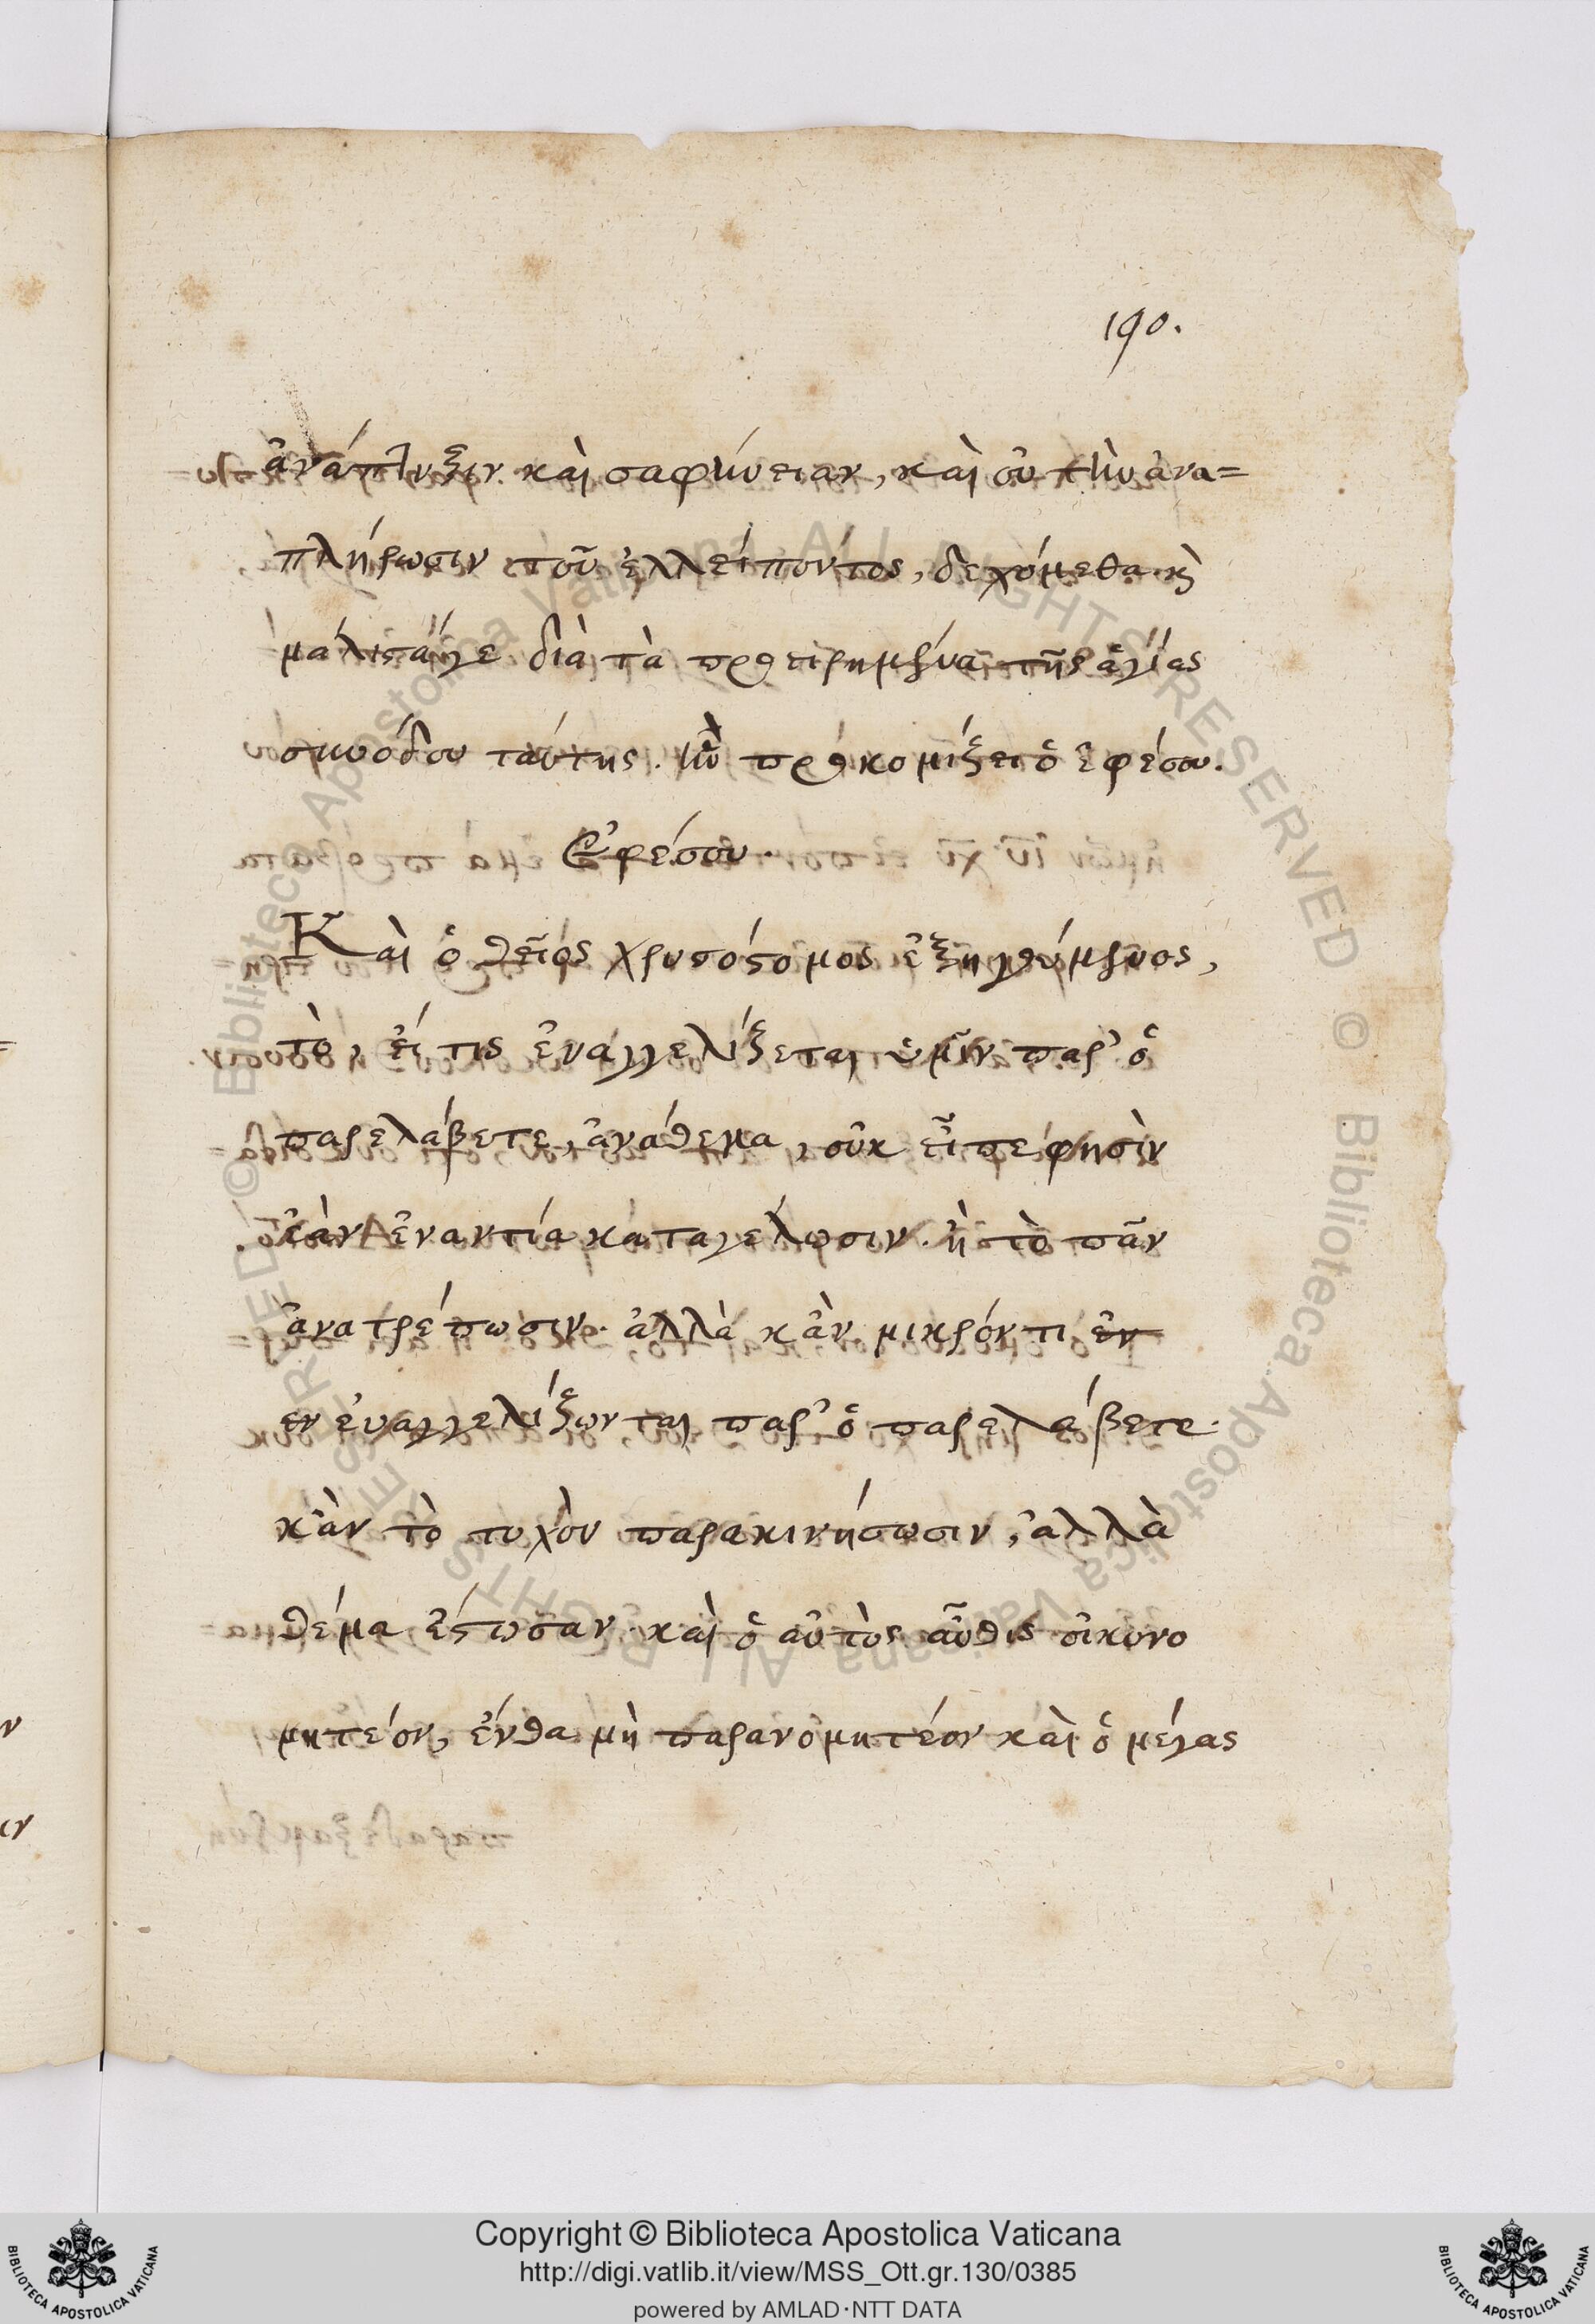 190.
ἀνάπλυξιν καὶ σαφήνειαν, καὶ οὐ τὴν ἀνα=
πλήρωσιν τοῦ ἐλλείποντος, δεχόμεθα κὶ
μάλιστάγε διὰ τὰ προειρημένα τῆς ἁγίας
συνόδου ταύτης. ἣν προκομίζει ὁ ἐφέσου.
Ἐφέσου.
Καὶ ὁ θεῖος χρυσόστομος ἐξηγούμενος,
τὸ, εἴ τις ἐυαγγελίζεται ὑμῖν παρ' ὃ
παρελάβετε, ἀνάθεμα, οὐκ εἶπε φησὶν
ἐὰν ἐναντία καταγέλωσιν. ἢ τὸ πᾶν
ἀνατρέπωσιν. ἀλλὰ κἂν μικρόν τι ἐν
εν ἐυαγγελίζωνται παρ' ὃ παρελάβετε.
κἂν τὸ τυχὸν παρακινήσωσιν, ἀλλὰ
θέμα ἔστωσαν. καὶ ὁ αὐτὸς αὖθις οἰκονο
μητέον, ἔνθα μὴ παρανομητέον καὶ ὁ μέγας
Copyright © Biblioteca Apostolica Vaticana
http://digi.vatlib.it/view/MSS_Ott.gr.130/0385
powered by AMLAD·NTT DATA
BIBLIOTECA APOSTOLICA VATICANA
BIBLIOTECA APOSTOLICA VATICANA